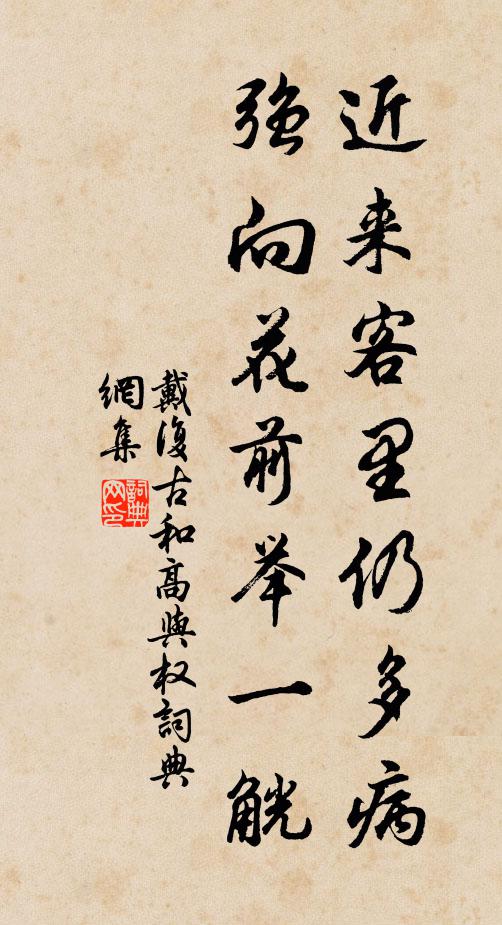 近来客里仍多病
强向花前举一觥
戴復古和高與权詞典
網集
詞典
网印